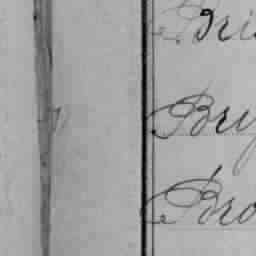 Bris
Bry
Bro